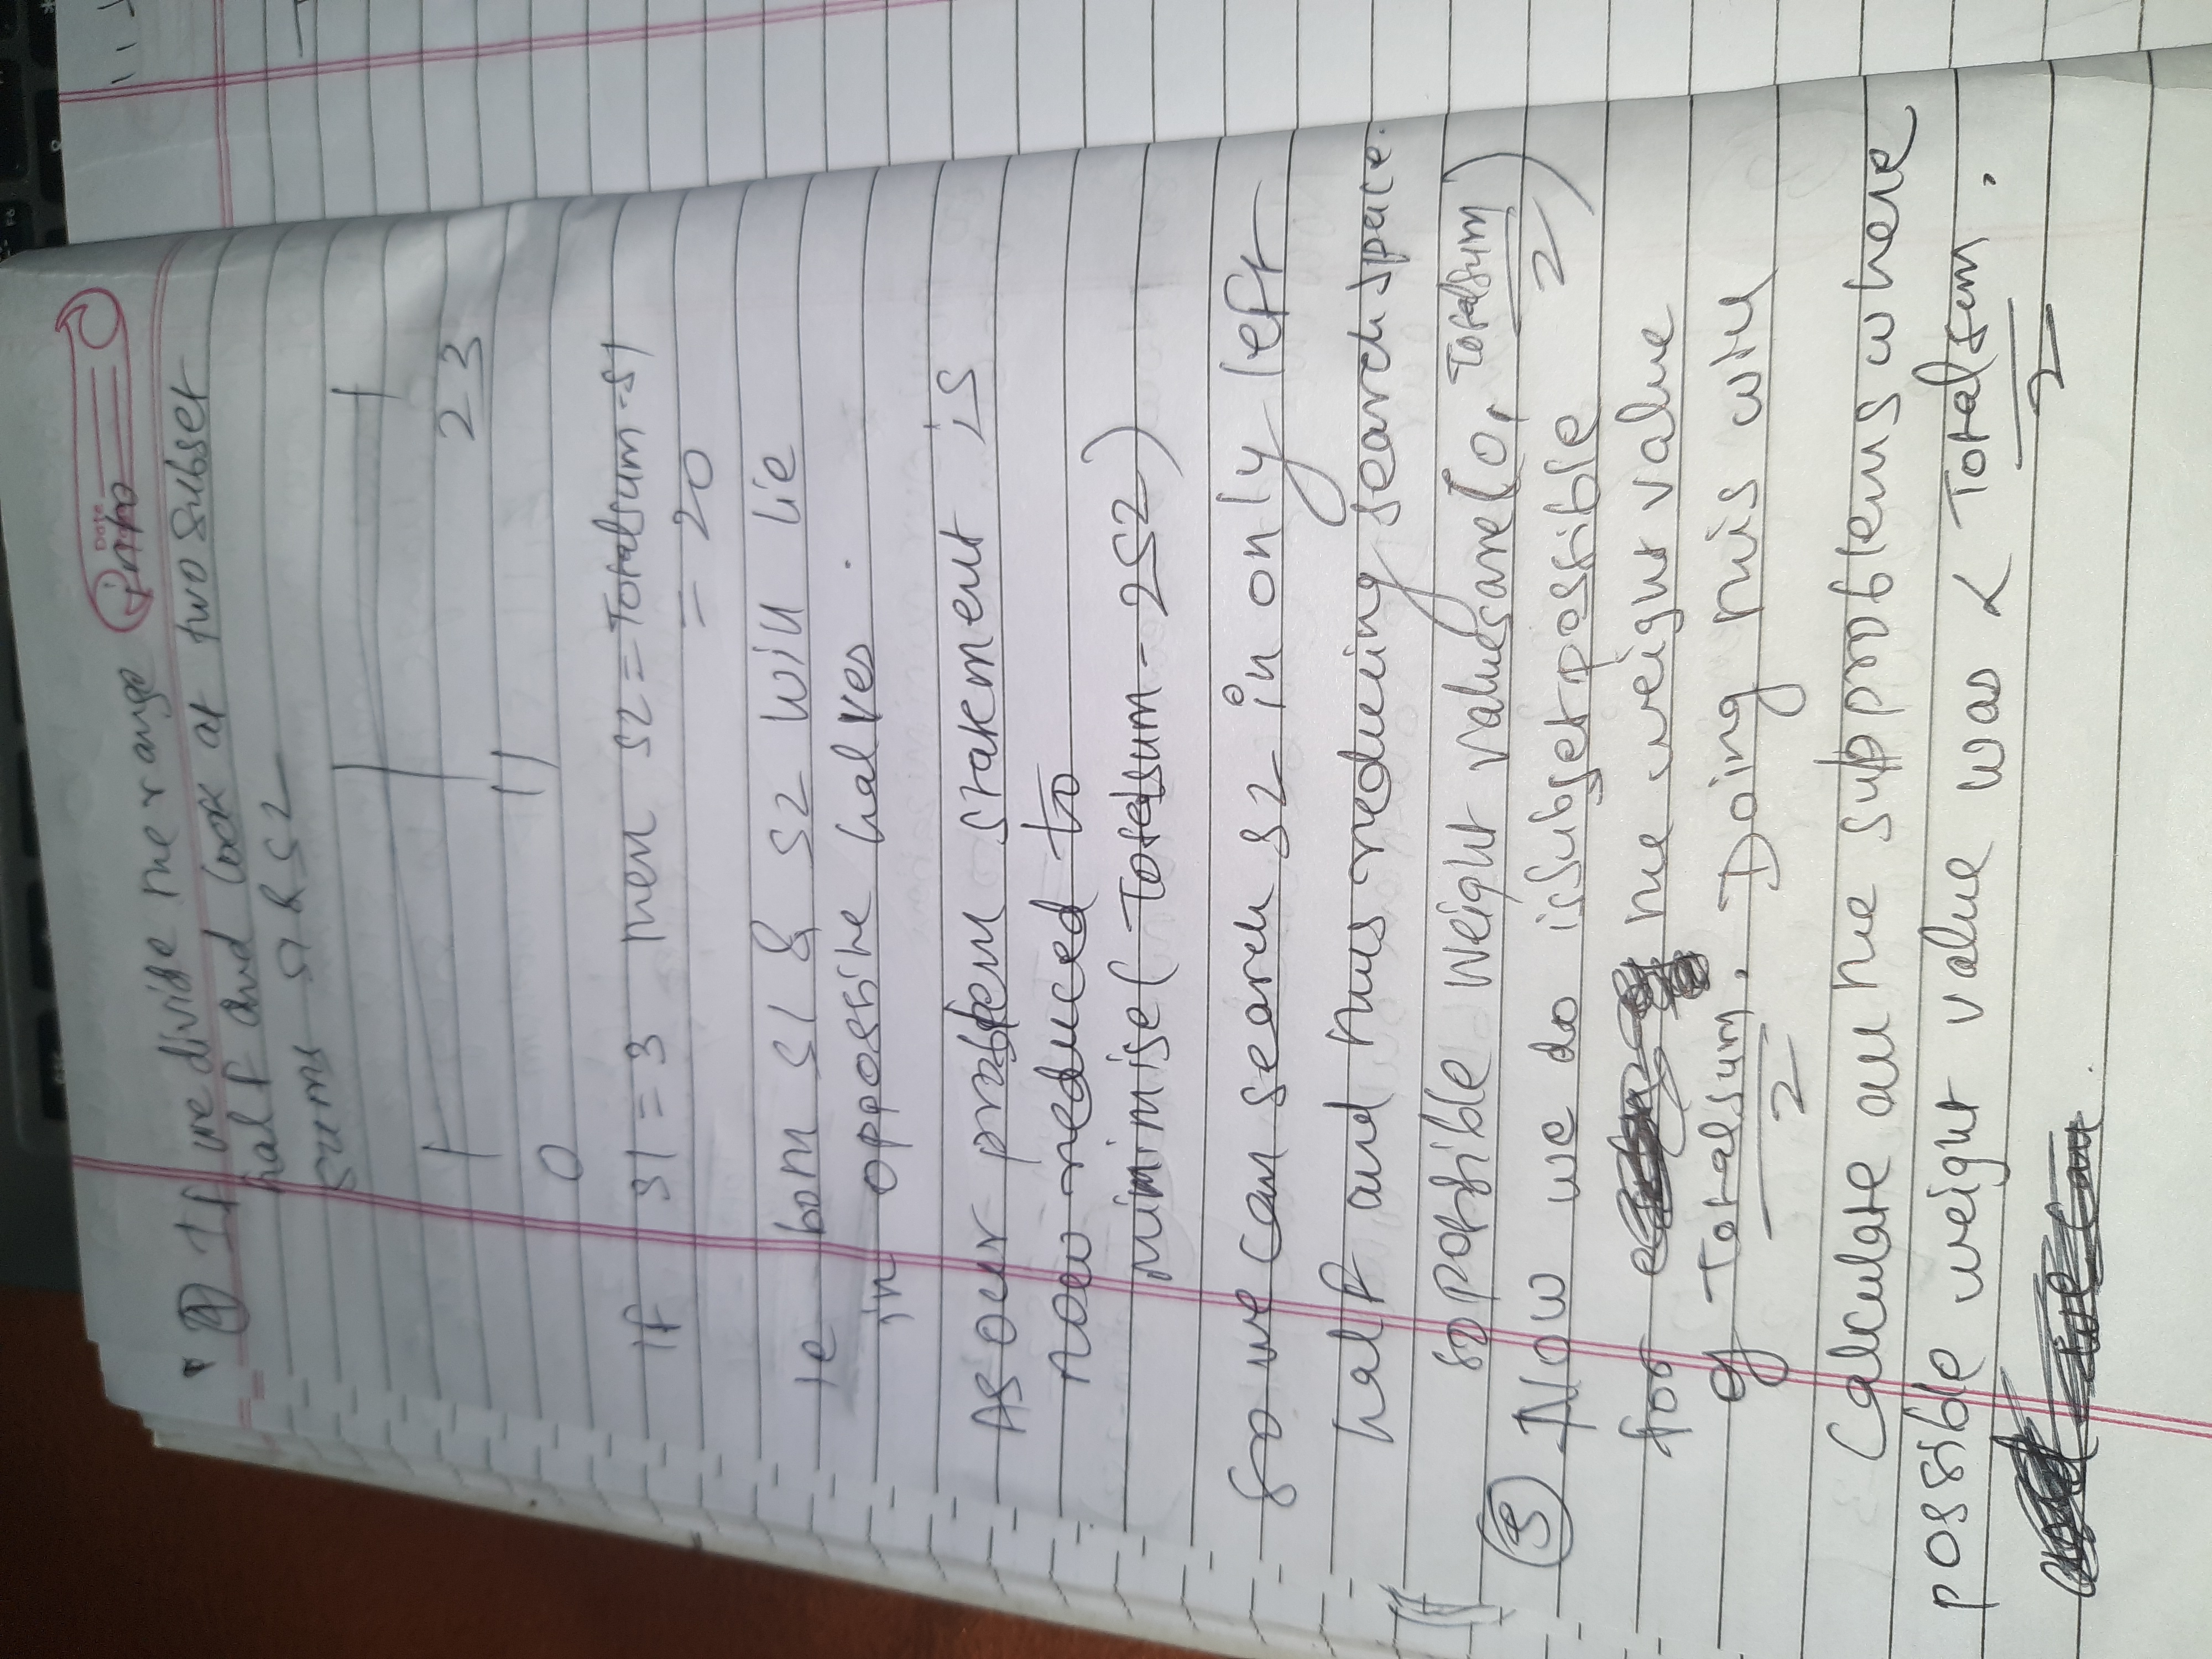 ④ If we divide the range into
half and look at two subset
sums S1 & S2
0 11 23
if S1 = 3 then S2 = Totalsum - S1
= 20
ie both S1 & S2 will lie
in oppossite halves.
As our problem statement is
now reduced to
minimise( Totalsum - 2S2)
So we can search S2 in only left
half and thus reducing search space.
so possible weight values are (0, Totalsum/2)
⑤ Now we do issubsetpossible
for the weight value
of Totalsum/2. Doing this will
Calculate all the subproblems where
possible weight value was < Totalsum/2.
we can.